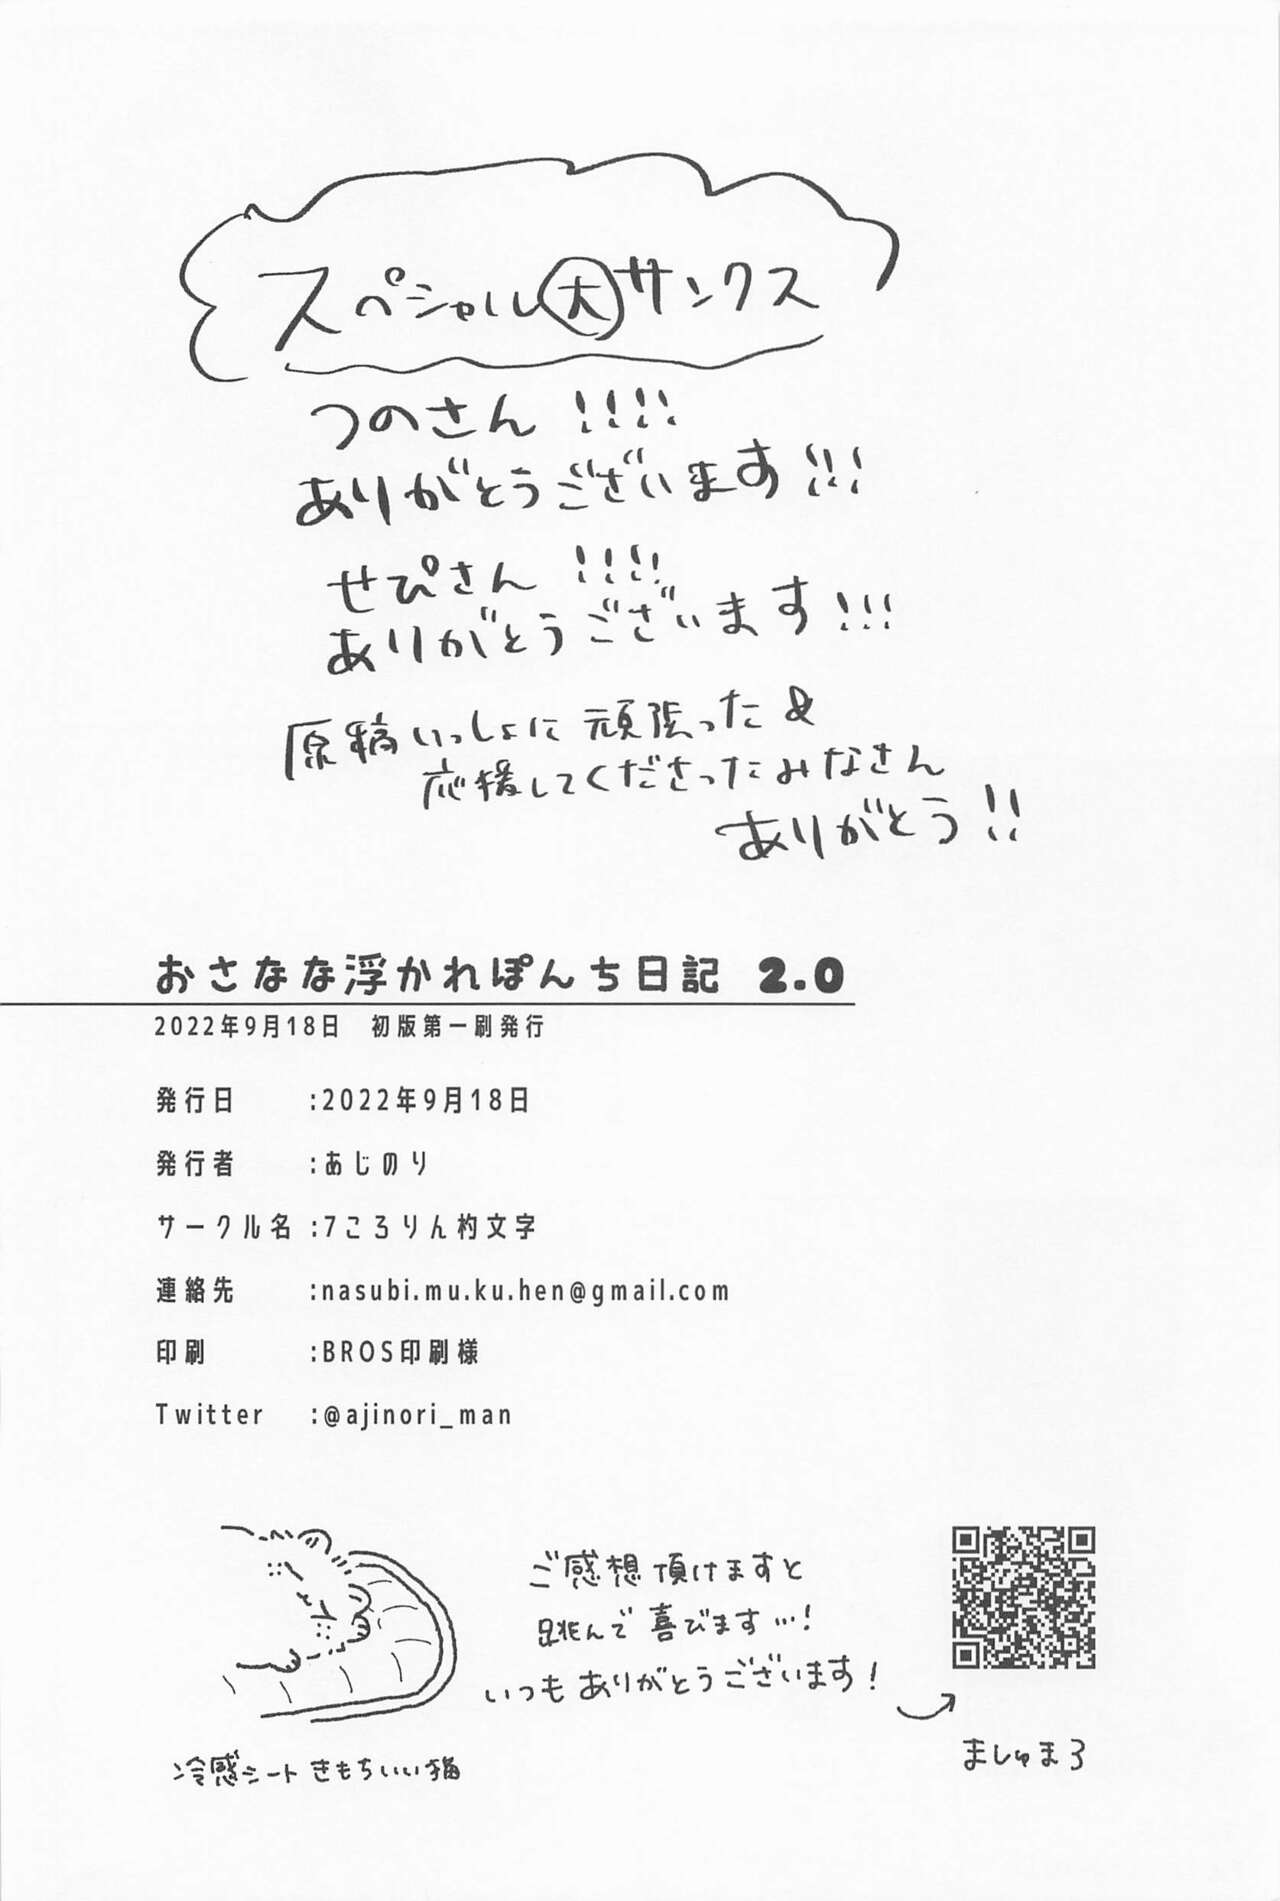 スペシャル大サンクス
つのさん!!!!
ありがとうございます!!!
せぴさん!!!!
ありがとうございます!!!
原稿いっしょに頑張った&
応援してくださったみなさん
ありがとう!!
おさなな浮かれぽんち日記 2.0
2022年9月18日 初版第一刷発行
発行日 :2022年9月18日
発行者 :あじのり
サークル名 :7ころりん杓文字
連絡先 :nasubi.mu.ku.hen@gmail.com
印刷 :BROS印刷様
Twitter :@ajinori_man
ご感想頂けますと
跳んで喜びます…!
いつもありがとうございます!
ましゅまろ
冷感シートきもちいい猫